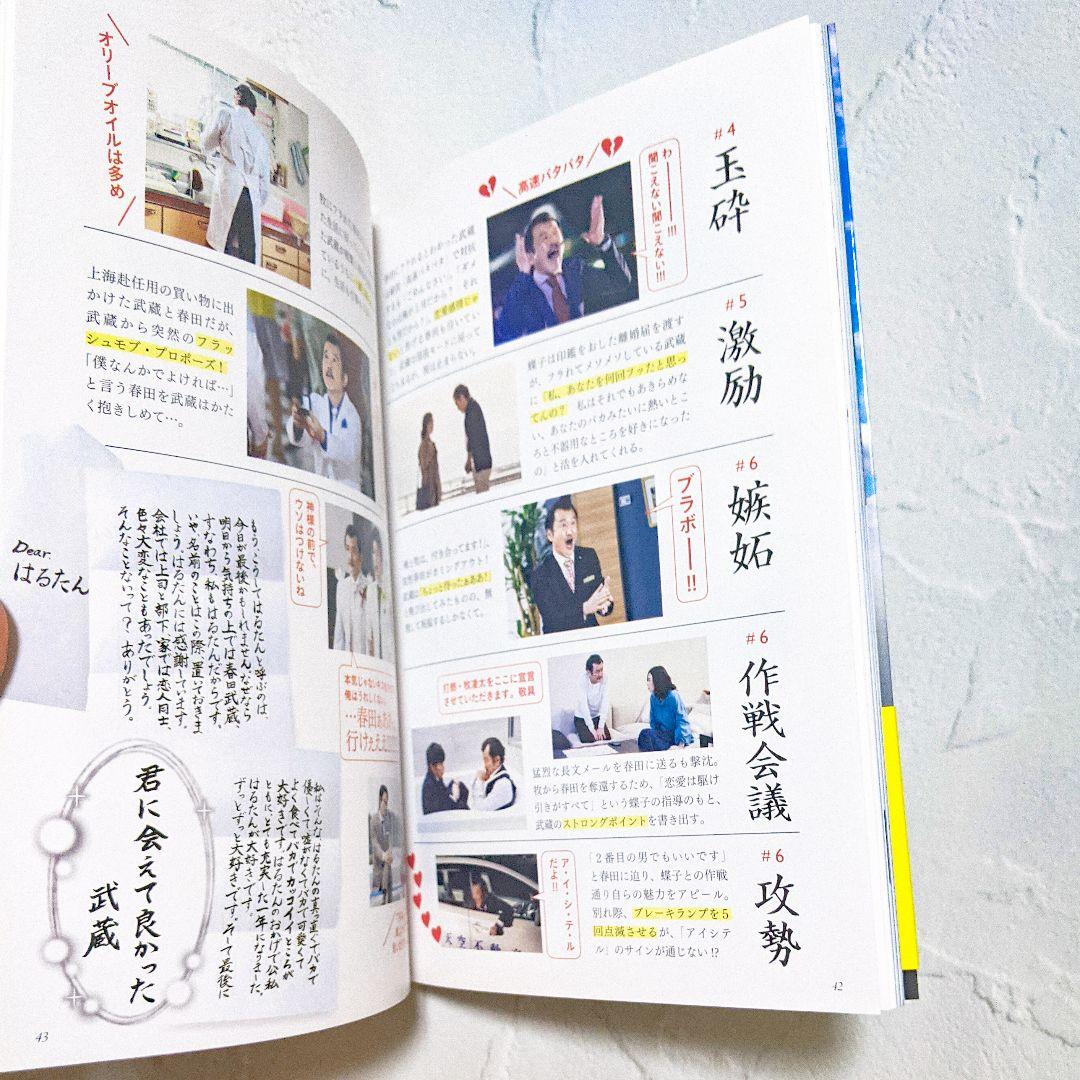 #4
玉砕
高速バタバタ
わ―――!!!
聞こえない聞こえない!!!
#5
激励
蝶子は印鑑をおした離婚届を渡す
が、フラれてメソメソしている武蔵
に「私、あなたを何回フッたと思っ
てんの? 私はそれでもあきらめな
い、あなたのバカみたいに熱いとこ
ろと不器用なところを好きになった
の」と活を入れてくれる。
#6
嫉妬
ブラボ――!!
#6
作戦会議
打倒・牧凌太をここに宣言
させていただきます。敬具
猛烈な長文メールを春田に送るも撃沈。
牧から春田を奪還するため、「恋愛は駆け
引きがすべて」という蝶子の指導のもと、
武蔵のストロングポイントを書き出す。
#6
攻勢
ア・イ・シ・テ・ル
だよ!!
「2番目の男でもいいです」
と春田に迫り、蝶子との作戦
通り自らの魅力をアピール。
別れ際、ブレーキランプを5
回点滅させるが、「アイシテ
ル」のサインが通じない!?
42
オリーブオイルは多め
上海赴任用の買い物に出
かけた武蔵と春田だが、
武蔵から突然のフラッ
シュモブ・プロポーズ!
「僕なんかでよければ…」
と言う春田を武蔵はかた
く抱きしめて…。
神様の前で、
ウソはつけないね
俺はうれしくない
行けぇええ
Dear.
はるたん
もう、こうしてはるたんと呼ぶのは、
今日が最後かもしれません。なぜなら
明日から気持ちの上では春田武蔵、
すなわち、私もはるたんだからです。
いや、名前のことはこの際、置いておきま
しょう。はるたんには感謝しています。
会社では上司と部下、家では恋人同士、
色々大変なこともあったでしょう。
そんなことないって? ありがとう。
私はそんなはるたんの真っ直ぐでバカで
優しくて嘘がなくてバカで可愛くて
よく食べてバカでカッコイイところが
大好きです。はるたんのおかげで公私
ともに、とても充実した一年になりました。
はるたんが大好きです。
ずっとずっと大好きです。そして最後に
君に会えて良かった
武蔵
43